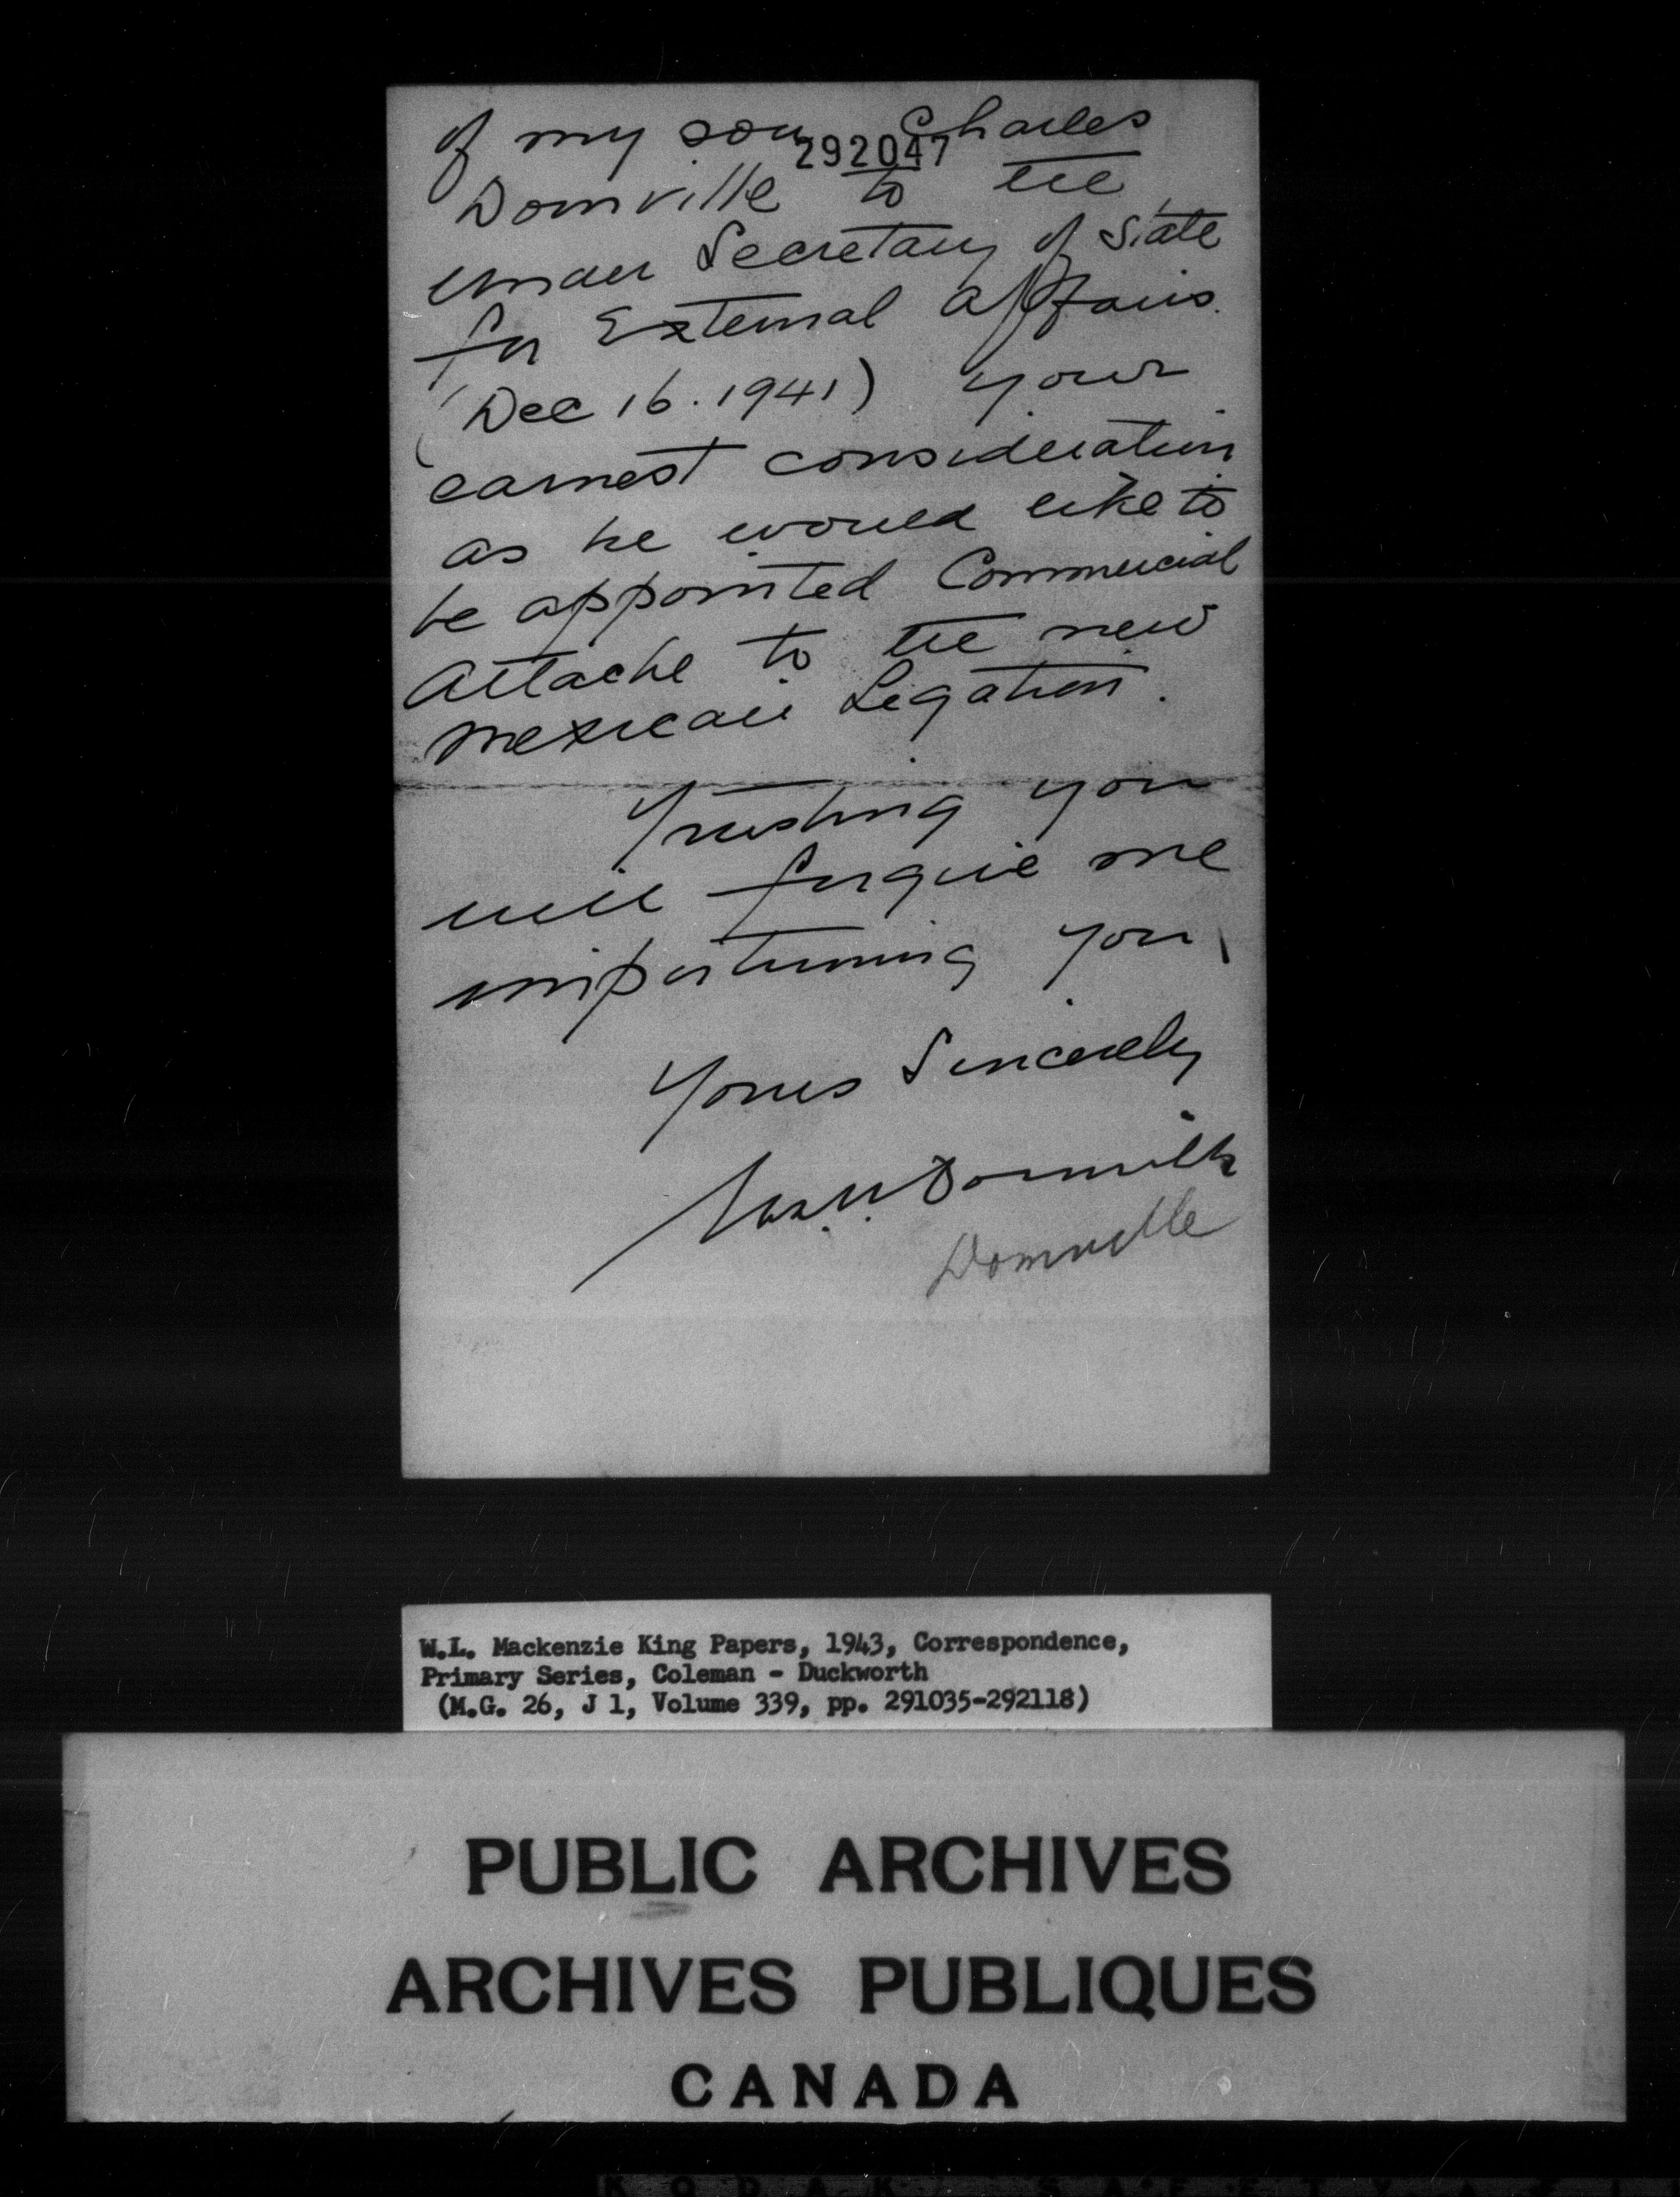 of my son Charles
292047
Domville to the
under Secretary of State
for External Affairs.
(Dec 16. 1941) your
earnest consideration
as he would like to
be appointed Commercial
Attache to the new
Mexican Legation.
Trusting you
will forgive me
importuning you,
Yours Sincerely
Domville
Domville
W.L. Mackenzie King Papers, 1943, Correspondence,
Primary Series, Coleman - Duckworth
(M.G. 26, J 1, Volume 339, pp. 291035-292118)
PUBLIC ARCHIVES
ARCHIVES PUBLIQUES
CANADA
KODAK SAFETY